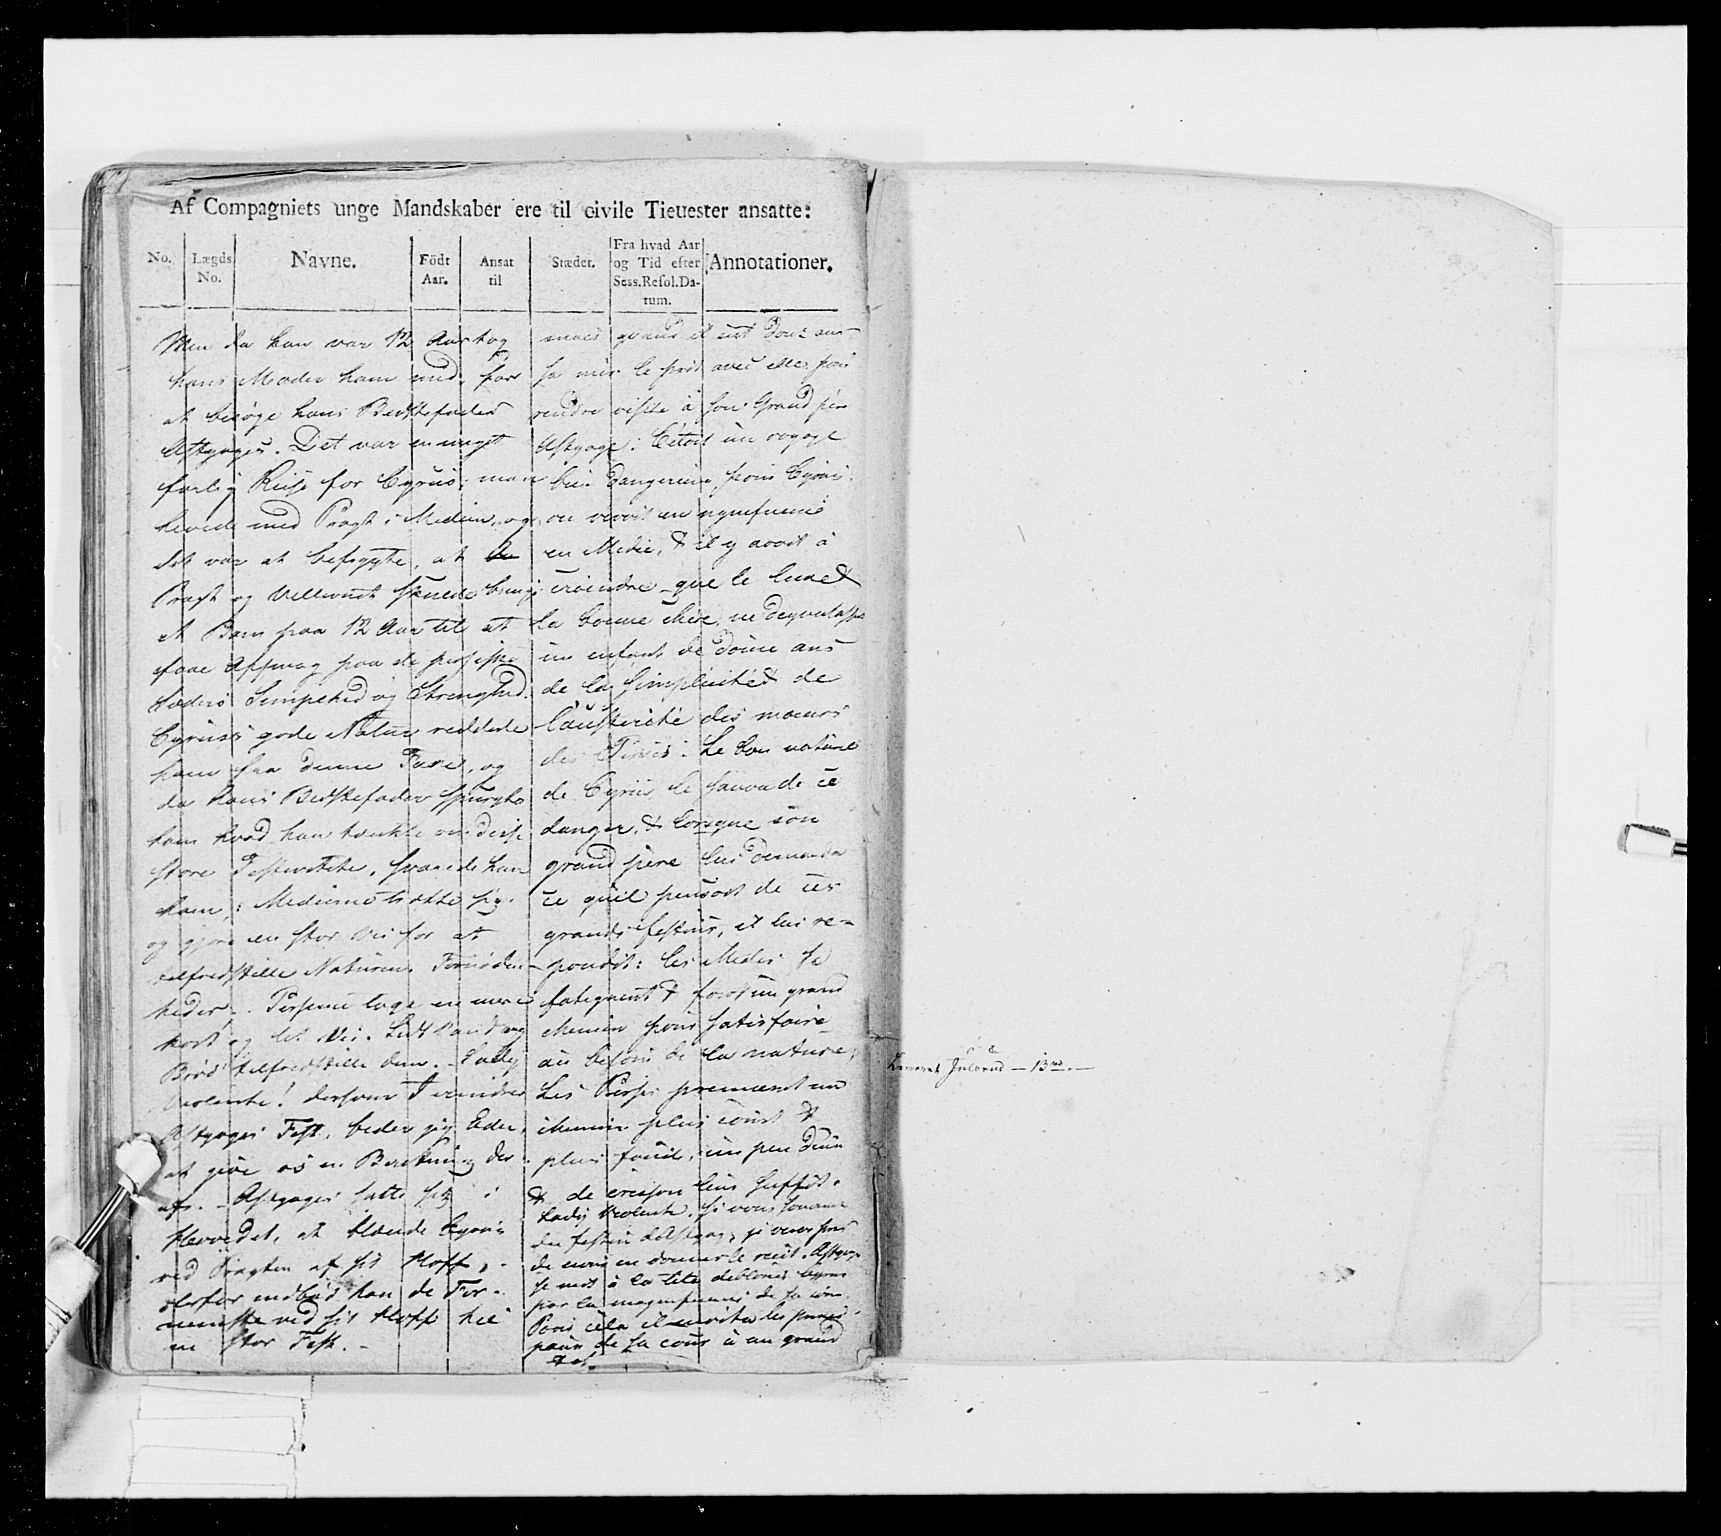 Af Compagniets unge Mandskaber ere til civile Tieuester ansatte:
No.
Lægds No.
Navne.
Födt Aar.
Ansat til
Stædet.
Fra hvad Aar og Tid efter Sess.Resol.Datum.
Annotationer.
Men da han var 12 Aar tog
hans Moder ham med for
at besøge hans Bedstefader
Astyages. Det var en meget
farlig Reise for Cyrus; man
levede med Pragt i Medien, og
det var at befrygte, at
Pragt og Vellevnet skulde bringe
et Barn paa 12 Aar til at
faae Afsmag paa de persiske
Sæders Simpelhed og Strenghed.
Cyrus's gode Natur reddede
ham fra denne Fare, og
da hans Bedstefader spurgte
ham hvad han tænkte om disse
store Festiviteter, svarede han
ham: Mederne trætte sig
og gjøre en stor Vei for at
tilfredsstille Naturens Fornøden-
heder. Perserne tage en mere
kort og let Vei. Lidt Vand og
Brød tilfredsstille dem. - Lady
Violente! dersom I erindrer
Astyages Fest, beder jeg Eder,
at give os en Beretning der
af. - Astyages satte sig i
Hovedet, at blænde Cyrus
ved Pragten af sit Hoff,
derfor indbød han de For-
nemste ved sit Hoff til
en stor Fest. -
mais quand il eut douze ans
sa mère le prit avec elle pour
rendre visite à son Grand père
Astyage: C'étoit un voyage
bien dangereux pour Cyrus.
on vivoit en
en Medie, & il y avoit à
craindre que le luxe &
la bonne chère, ne degoutasse
un enfant de douze ans
de la simplicité & de
l'austerité des moeurs
des Perses. Le bon naturel
de Cyrus le sauva de ce
danger, & lorsque son
grand père lui demanda
ce qu'il pensoit de ces
grands festins, il lui re-
pondit: les Medes se
fatiguent & font un grand
chemin pour satisfaire
au besoin de la nature;
Les Perses prennent un
chemin plus court &
plus facile, un peu d'eau
& de cresson leur suffit.
Lady Violente, si vous souvenez
du festin d'Astyage, je vous prie
de nous en donner le recit. Astyage
se mit à la tête d'eblouir Cyrus
par la magnificence de sa cour.
Pour cela il invita les princi-
paux de sa cour à un grand
13